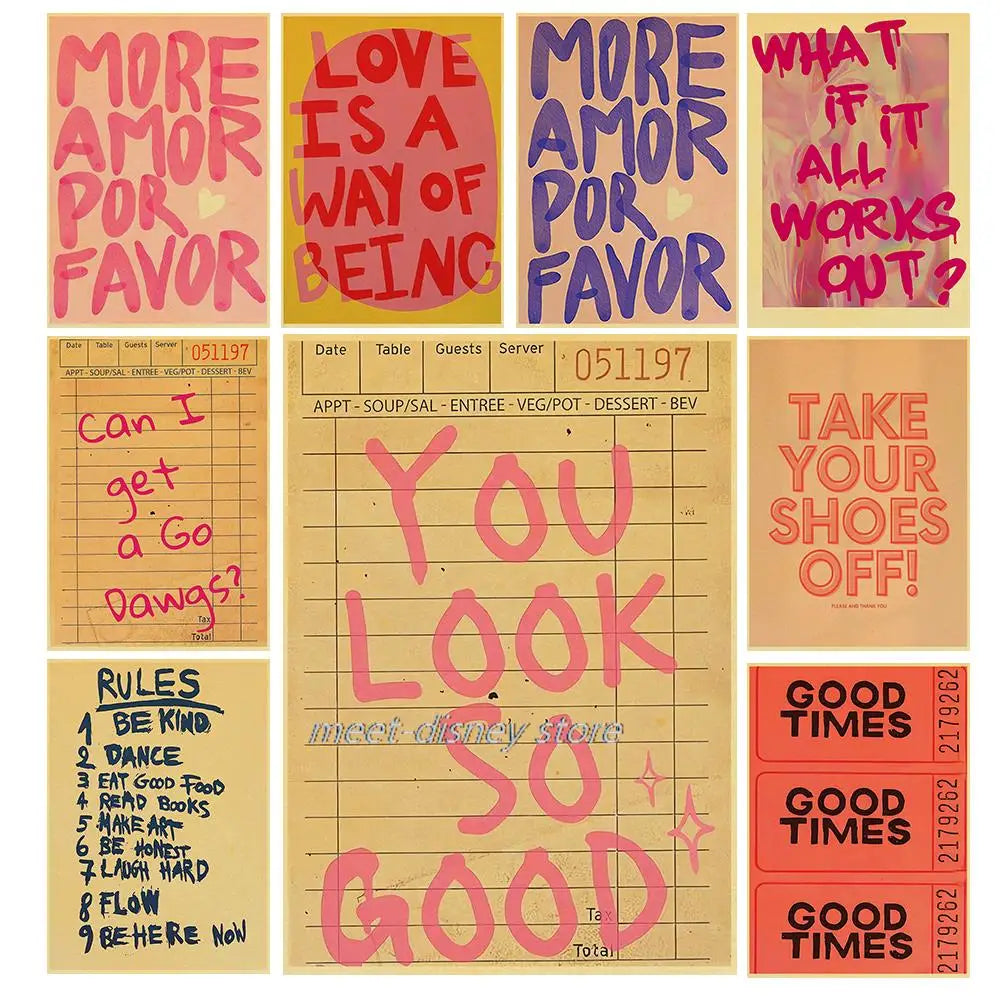 MORE
AMOR
POR
FAVOR
LOVE
IS A
WAY OF
BEING
MORE
AMOR
POR
FAVOR
WHAT
IF IT
ALL
WORKS
OUT?
Date Table Guests Server 051197
APPT - SOUP/SAL - ENTREE - VEG/POT - DESSERT - BEV
Can I
get
a Go
Dawgs?
Tax
Total
Date Table Guests Server 051197
APPT - SOUP/SAL - ENTREE - VEG/POT - DESSERT - BEV
YOU
LOOK
meet-disney store
SO
GOOD
Tax
Total
TAKE
YOUR
SHOES
OFF!
PLEASE AND THANK YOU
RULES
1 BE KIND
2 DANCE
3 EAT GOOD FOOD
4 READ BOOKS
5 MAKE ART
6 BE HONEST
7 LAUGH HARD
8 FLOW
9 BE HERE NOW
GOOD
TIMES
2179262
GOOD
TIMES
2179262
GOOD
TIMES
2179262